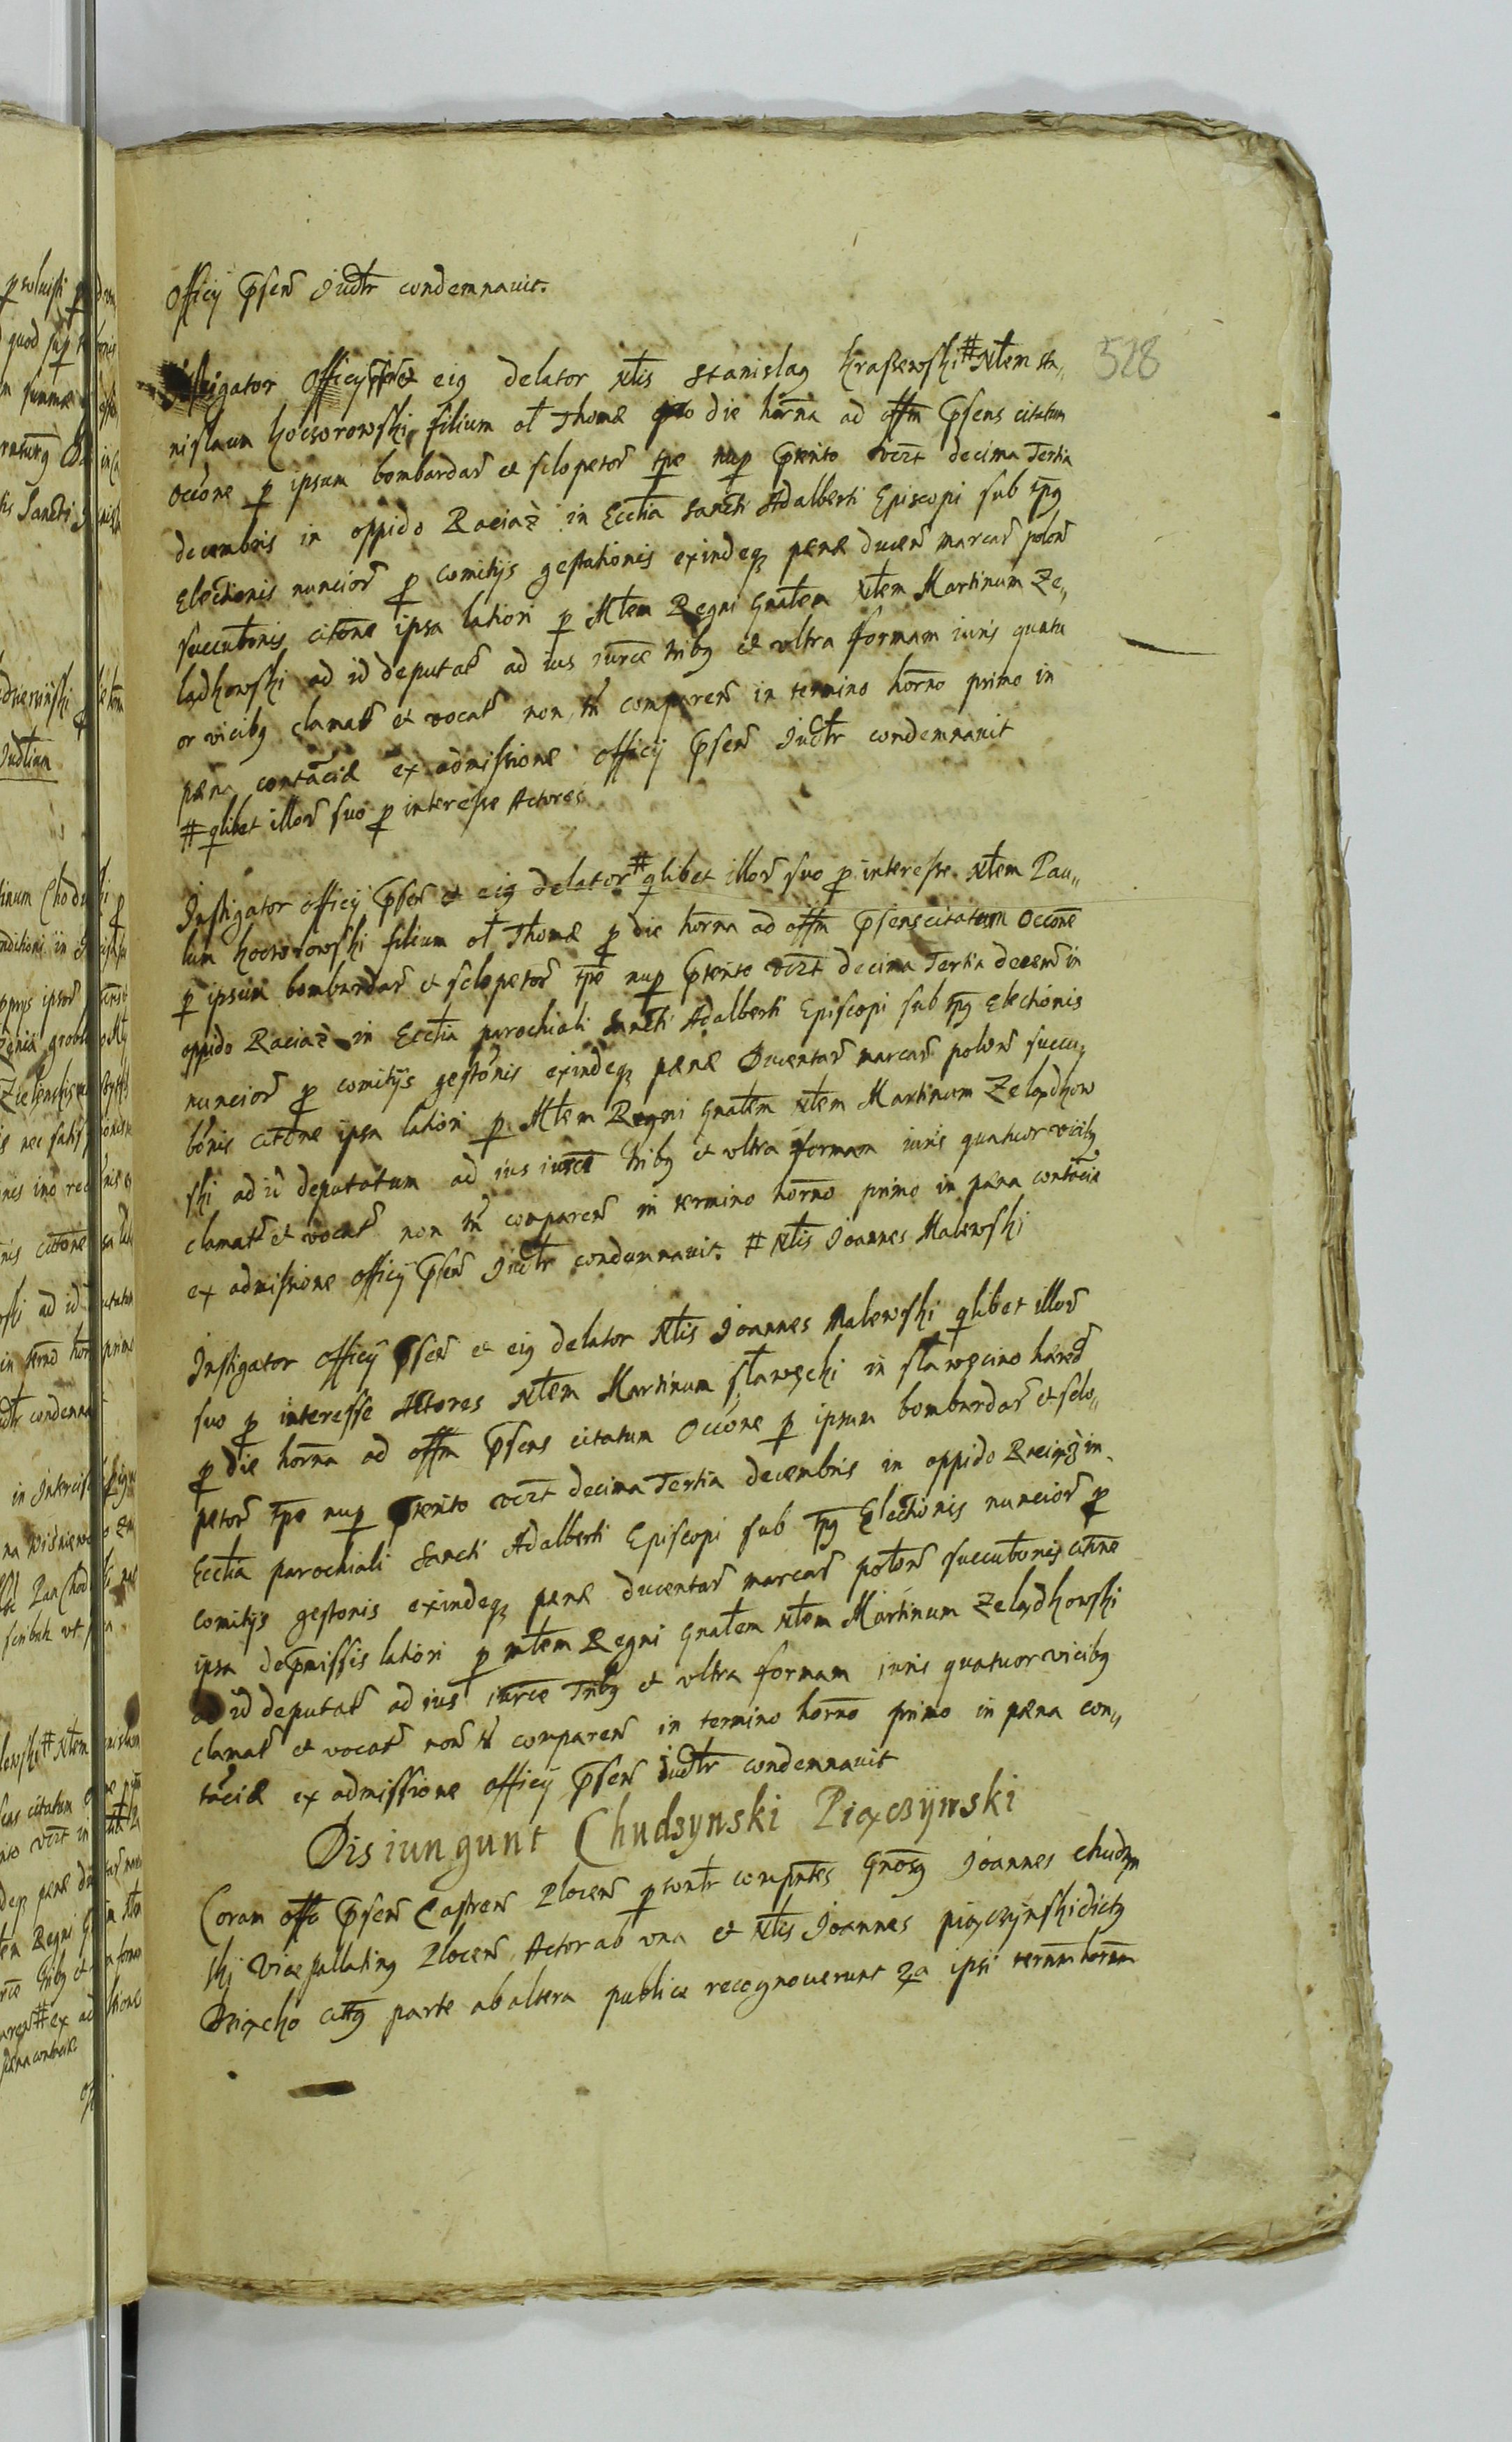 officÿ p̄sen̄ Iudr̄ condemnauit.
528
Instigator officÿ p̄sen̄ et eiꝰ delator Nłis Stanislaꝰ Kraßewski # Nłem Sta„
nislaum Koczorowski filium oł Thomæ ꝓ die hor̄na ad offm̄ p̄sens citatum
occōne ꝑ ipsum bombardar̄ et sclopetor̄ tp̄e nuꝑ p̄terito vcz̄t decima Tertia
decembris in oppido Raciąż in Eccl̄ia Sancti Adalberti Episcopi sub tp̄ꝰ
Electionis nuncior̄ ꝓ comitijs gestationis exindeqꝫ pænæ ducen̄ marcar̄ polon̄
succubōnis citōne ipsa latiori ꝑ Młem Regni Gnałem Nłem Martinum Ze„
ladkowski ad id deputat̄ ad ius iurc̄e tribꝰ et vltra formam iuris quatu
or vicibꝰ clamat̄ et vocat̄ non tn̄ comparen̄ in termino hor̄no primo in
pæna contāciæ ex admissione officÿ p̄sen̄ Iudr̄ condemnauit
# qlibet illor̄ suo ꝓ interesse Actores
Instigator officÿ p̄sen̄ et eiꝰ delator # qlibet illor̄ suo ꝓ interesse Nłem Pau„
lum Koczorowski filium oł Thomæ ꝓ die hor̄na ad offm̄ p̄sens citatum occōne
ꝑ ipsum bombardar̄ et sclopetor̄ tp̄e nuꝑ p̄terito vcz̄t decima Tertia decem̄ in
oppido Raciąż in Eccl̄ia parochiali Sancti Adalberti Episcopi sub tp̄ꝰ Electionis
nuncior̄ ꝓ comitijs gestōnis exindeqꝫ pænæ Ducentar̄ marcar̄ polon̄ succu„
bōnis citōne ipsa latiori ꝑ Młem Regni Gnałem Nłem Martinum Zeladkow
ski ad id deputatum ad ius iurc̄e tribꝰ et vltra formam iuris quatuor vicibꝰ
clamat̄ et vocat̄ non tn̄ comparen̄ in termino hor̄no primo in pæna contāciæ
ex admissione officÿ p̄sen̄ Iudr̄ condemnauit. # Nłis Ioannes Malewski
Instigator officÿ p̄sen̄ et eiꝰ delator Nłis Ioannes Malewski qlibet illor̄
suo ꝓ interesse Actores Nłem Martinum Sławęcki in Sławęcino hæred̄
ꝓ die hor̄na ad offm̄ p̄sens citatum occōne ꝑ ipsum bombardar̄ et sclo„
petor̄ tp̄e nuꝑ p̄terito vcz̄t decima Tertia decembris in oppido Raciąż in
Eccl̄ia parochiali Sancti Adalberti Episcopi sub tp̄ꝰ Electionis nuncior̄ ꝓ
comitijs gestonis exindeqꝫ pænæ ducentar̄ marcar̄ polon̄ succubōnis citōne
ipsa de p̄missis latiori ꝑ Młem Regni Gnałem Nłem Martinum Zeladkowski
ad id deputat̄ ad ius iurc̄e Tribꝰ et vltra formam iuris quatuor vicibꝰ
clamat̄ et vocat̄ non tn̄ comparen̄ in termino hor̄no primo in pæna con„
tāciæ ex admissione officÿ p̄sen̄ Iudr̄ condemnauit
Disiungunt Chudzynski Piączÿnski
Coram offo p̄sen̄ Castren̄ Plocen̄ ꝑsonłr compn̄tes Gnōsꝰ Ioannes Chudzyn
ski Vicepallatinꝰ Plocen̄ Actor ab vna et Nłis Ioannes piączÿnski dictꝰ
Dziącko citt̄ꝰ parte ab altera publice recognouerunt qa ipsi termm̄ hor̄nm